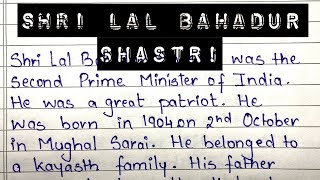 SHRI LAL BAHADUR
SHASTRI
Shri Lal B was the
second Prime Minister of India.
He was a great patriot. He
was born in 1904 on 2nd October
in Mughal Sarai. He belonged to
a kayasth family. His father